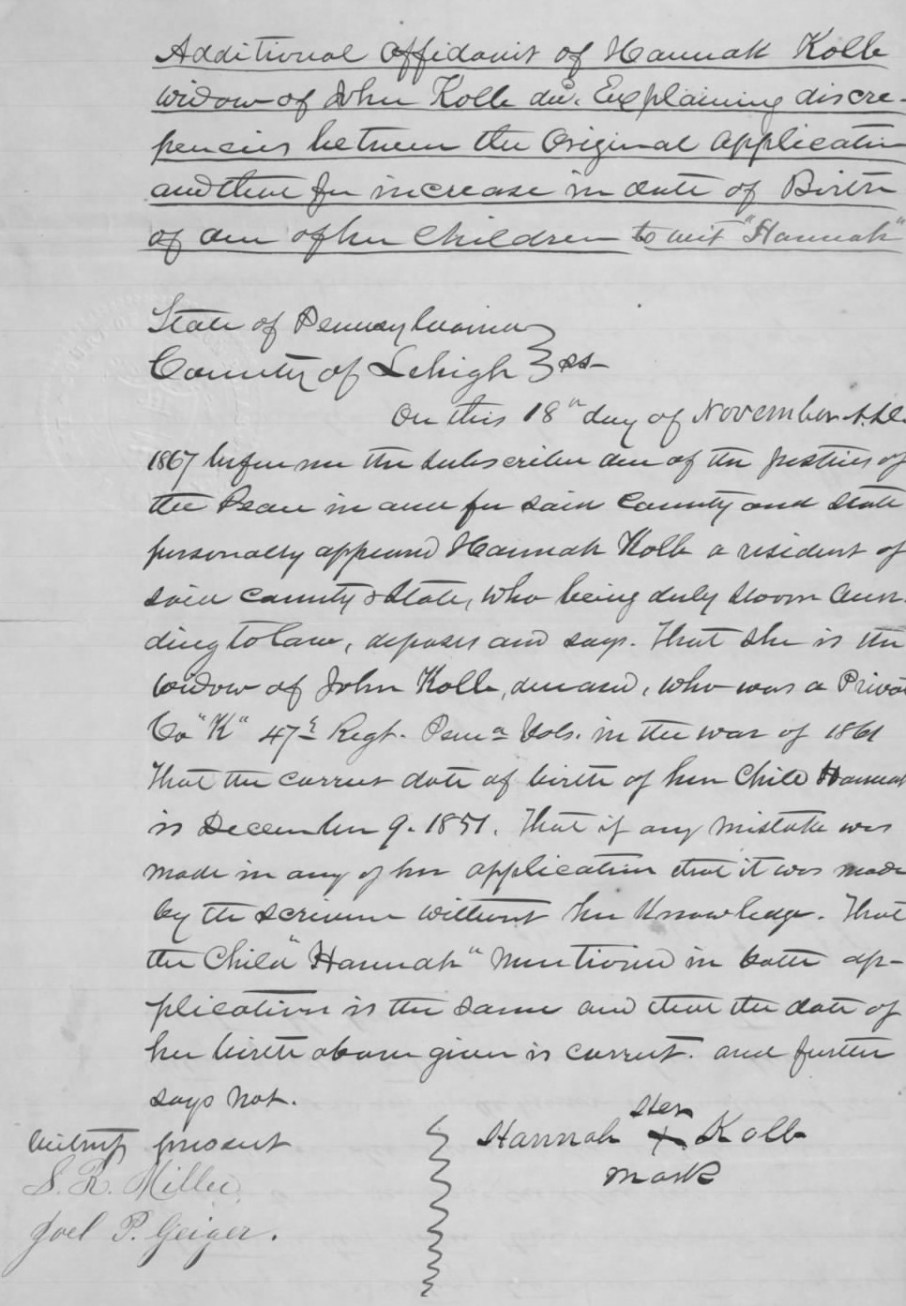 Additional Affidavit of Hannah Kolb
widow of John Kolb dec'd. Explaining discre-
pencies between the Original Application
and that for increase in date of Birth
of one of her Children to wit "Hannah"
State of Pennsylvania }
County of Lehigh } ss-
On this 18th day of November A.D.
1867 before me the subscriber one of the Justices of
the Peace in and for said County and State
personally appeared Hannah Kolb a resident of
said County & State, who being duly sworn accor-
ding to law, deposes and says. That she is the
widow of John Kolb, deceased, who was a Private
Co "K" 47th Regt. Penna Vols. in the war of 1861
That the correct date of birth of her Child Hannah
is December 9. 1851. That if any mistake was
made in any of her application that it was made
by the scrivener without her Knowledge. That
the Child "Hannah" mentioned in both ap-
plication is the same and that the date of
her birth above given is correct. and further
says not.
Witness present
S. R. Miller
Joel P. Geiger.
Hannah her X Kolb
mark